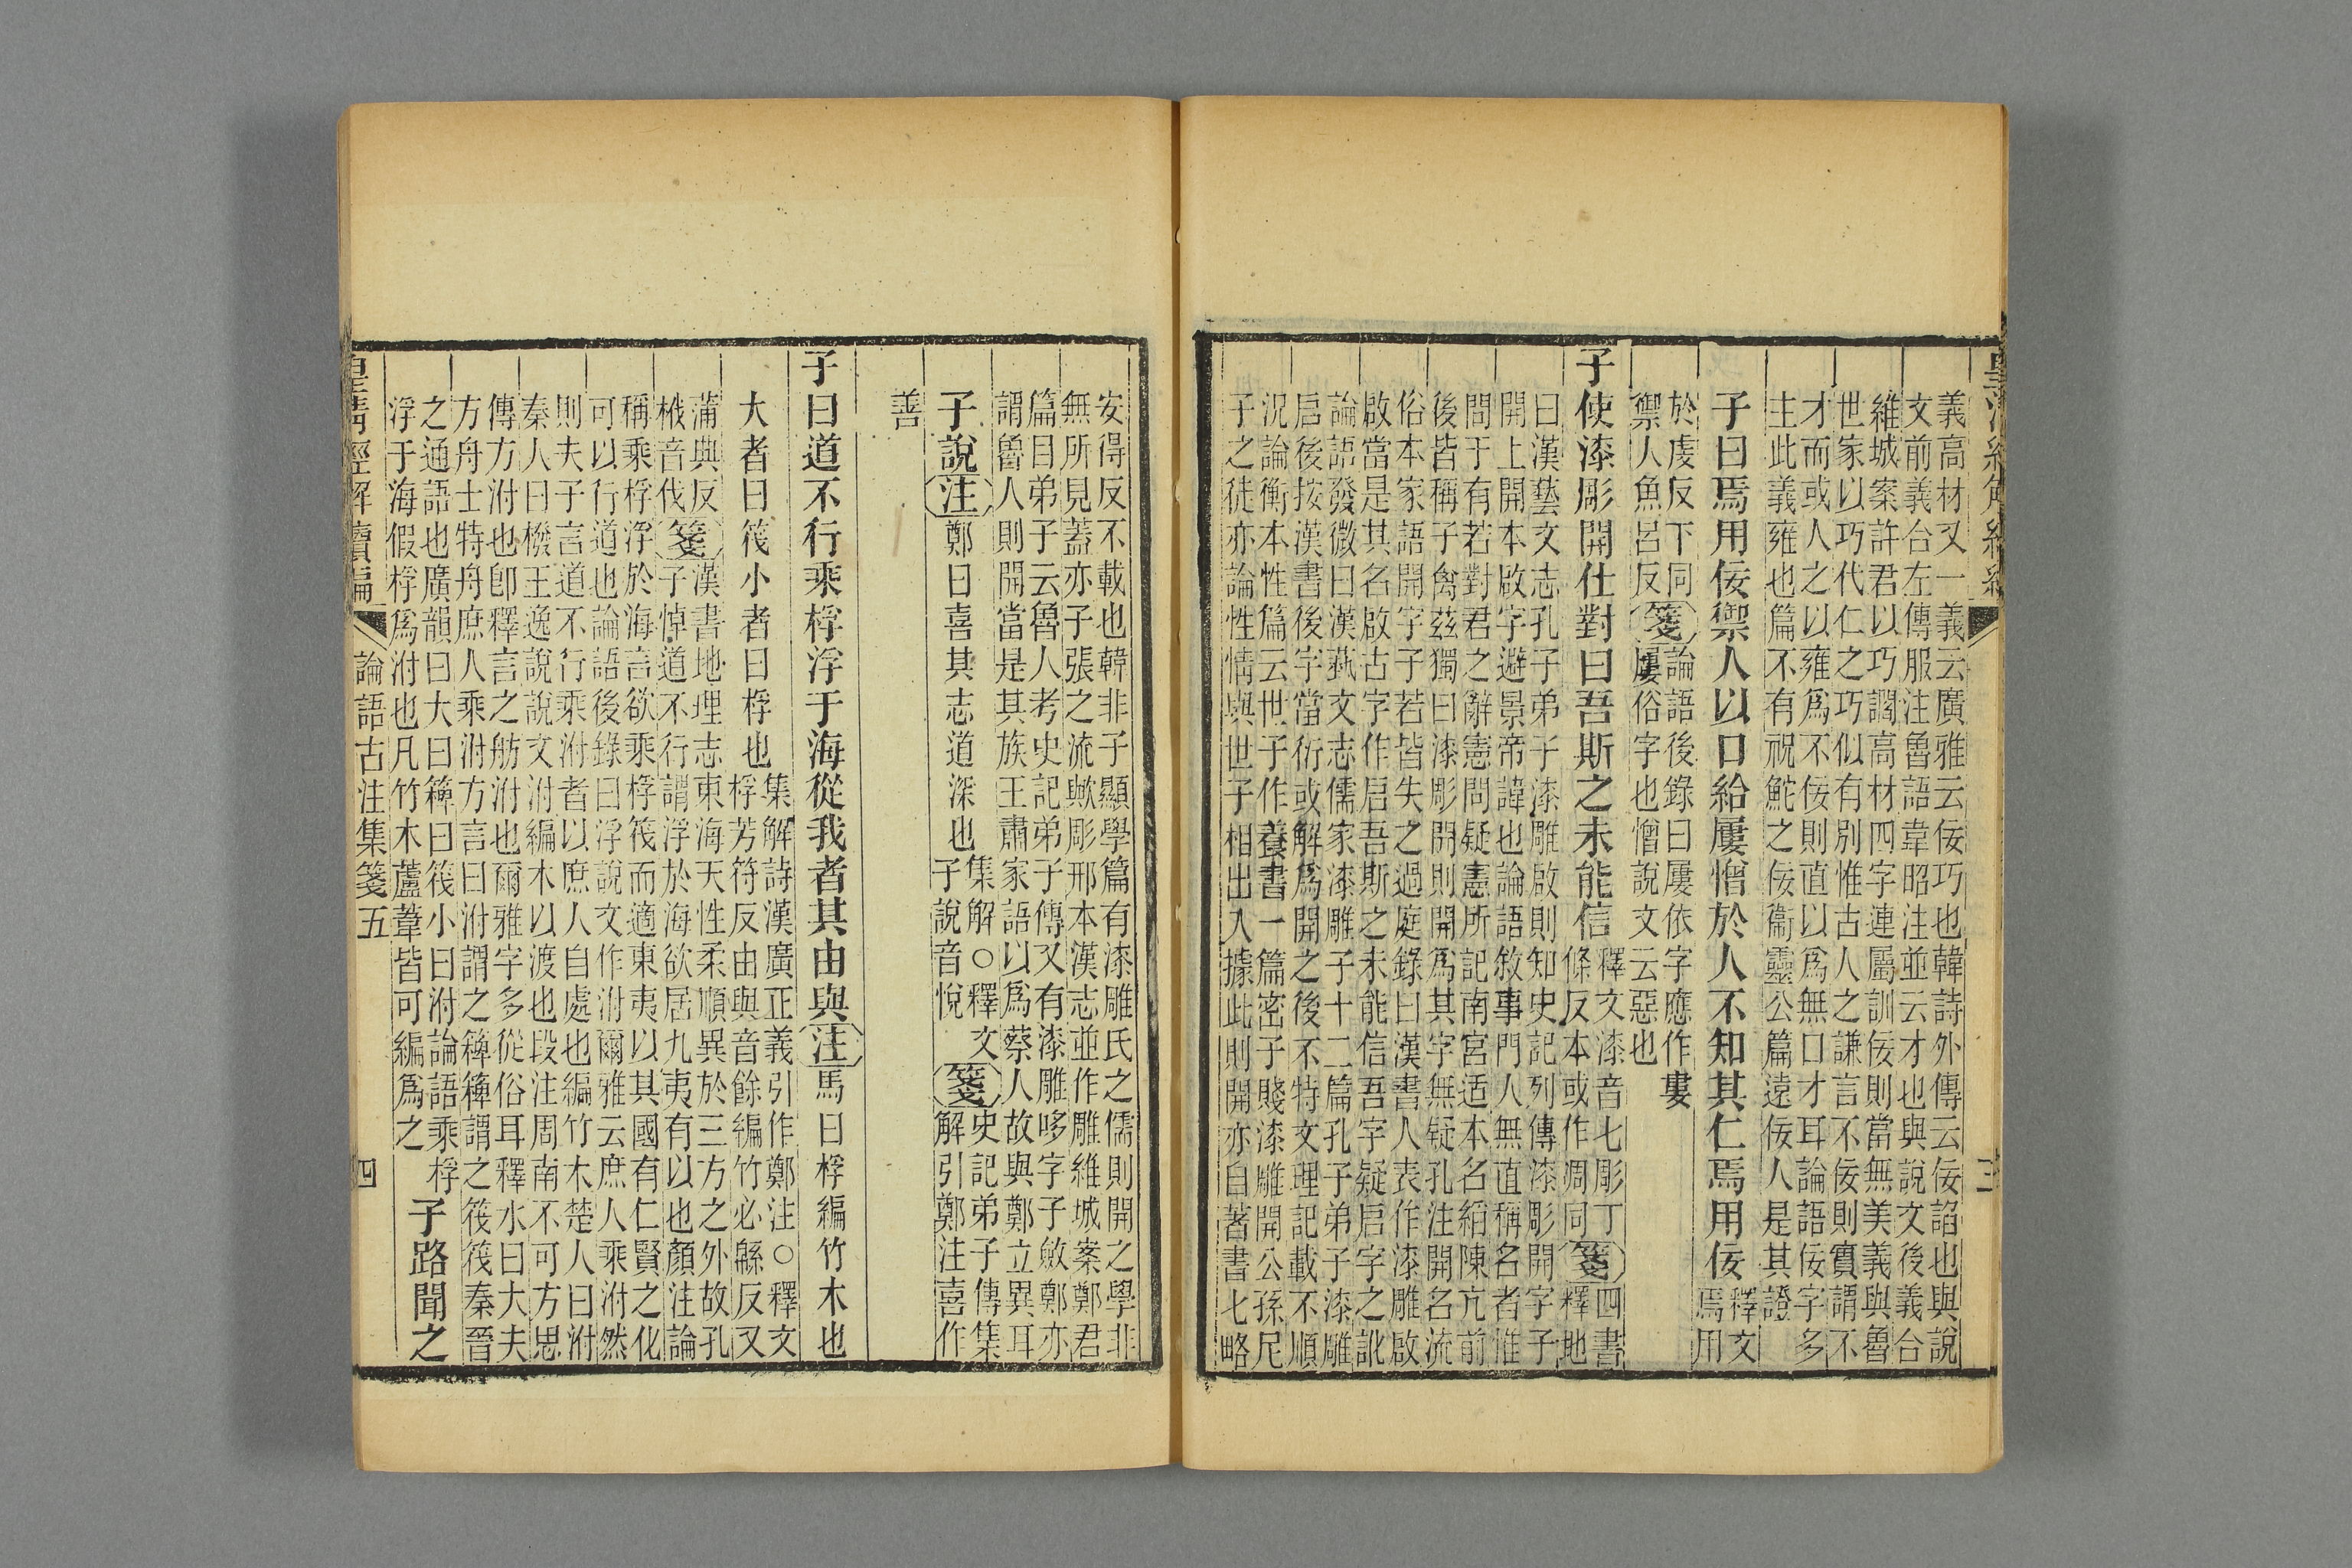 皇清經解續編
三
義高材又一義云廣雅云佞巧也韓詩外傳云佞諂也與說
文前義合左傳服注魯語韋昭注並云才也與說文後義合
維城案許君以巧讇高材四字連屬訓佞則當無美義與魯
世家以巧代仁之巧似有別惟古人之謙言不佞則實謂不
才而或人之以雍爲不佞則直以爲無口才耳論語佞字多
主此義雍也篇不有祝鮀之佞衞靈公篇遠佞人是其證
子曰焉用佞禦人以口給屢憎於人不知其仁焉用佞釋文焉用
於虔反下同
禦人魚呂反箋論語後錄曰屢依字應作婁
屢俗字也憎說文云惡也
子使漆彫開仕對曰吾斯之未能信釋文漆音七彫丁條反本或作凋同箋四書釋地
曰漢藝文志孔子弟子漆雕啟則知史記列傳漆彫開字子
開上開本啟字避景帝諱也論語敘事門人無直稱名者惟
問于有若對君之辭憲問疑憲所記南宮适本名縚陳亢前
後皆稱子禽茲獨曰漆彫開則開爲其字無疑孔注開名流
俗本家語開字子若皆失之過庭錄曰漢書人表作漆雕啟
啟當是其名啟古字作启吾斯之未能信吾字疑启字之訛
論語發微曰漢蓺文志儒家漆雕子十二篇孔子弟子漆雕
启後按漢書後字當衍或解爲開之後不特文理記載不順
況論衡本性篇云世子作養書一篇密子賤漆雕開公孫尼
子之徒亦論性情與世子相出入據此則開亦自著書七略
安得反不載也韓非子顯學篇有漆雕氏之儒則開之學非
無所見蓋亦子張之流歟彫邢本漢志並作雕維城案鄭君
篇目弟子云魯人考史記弟子傳又有漆雕哆字子斂鄭亦
謂魯人則開當是其族王肅家語以爲蔡人故與鄭立異耳
子說注鄭曰喜其志道深也集解○釋文子說音悅箋史記弟子傳集解引鄭注喜作
善
子曰道不行乘桴浮于海從我者其由與注馬曰桴編竹木也
大者曰筏小者曰桴也集解詩漢廣正義引作鄭注○釋文桴芳符反由與音餘編竹必緜反又
蒲典反箋漢書地理志東海天性柔順異於三方之外故孔
栰音伐子悼道不行謂浮於海欲居九夷有以也顏注論
稱乘桴浮於海言欲乘桴筏而適東夷以其國有仁賢之化
可以行道也論語後錄曰浮說文作泭爾雅云庶人乘泭然
則夫子言道不行乘泭者以庶人自處也編竹木楚人曰泭
秦人曰橃王逸說說文泭編木以渡也段注周南不可方思
傳方泭也卽釋言之舫泭也爾雅字多從俗耳釋水曰大夫
方舟士特舟庶人乘泭方言曰泭謂之𥱼𥱼謂之筏筏秦晉
之通語也廣韻曰大曰𥱼曰筏小曰泭論語乘桴
浮于海假桴爲泭也凡竹木蘆葦皆可編爲之子路聞之
皇清經解續編
論語古注集箋五
四